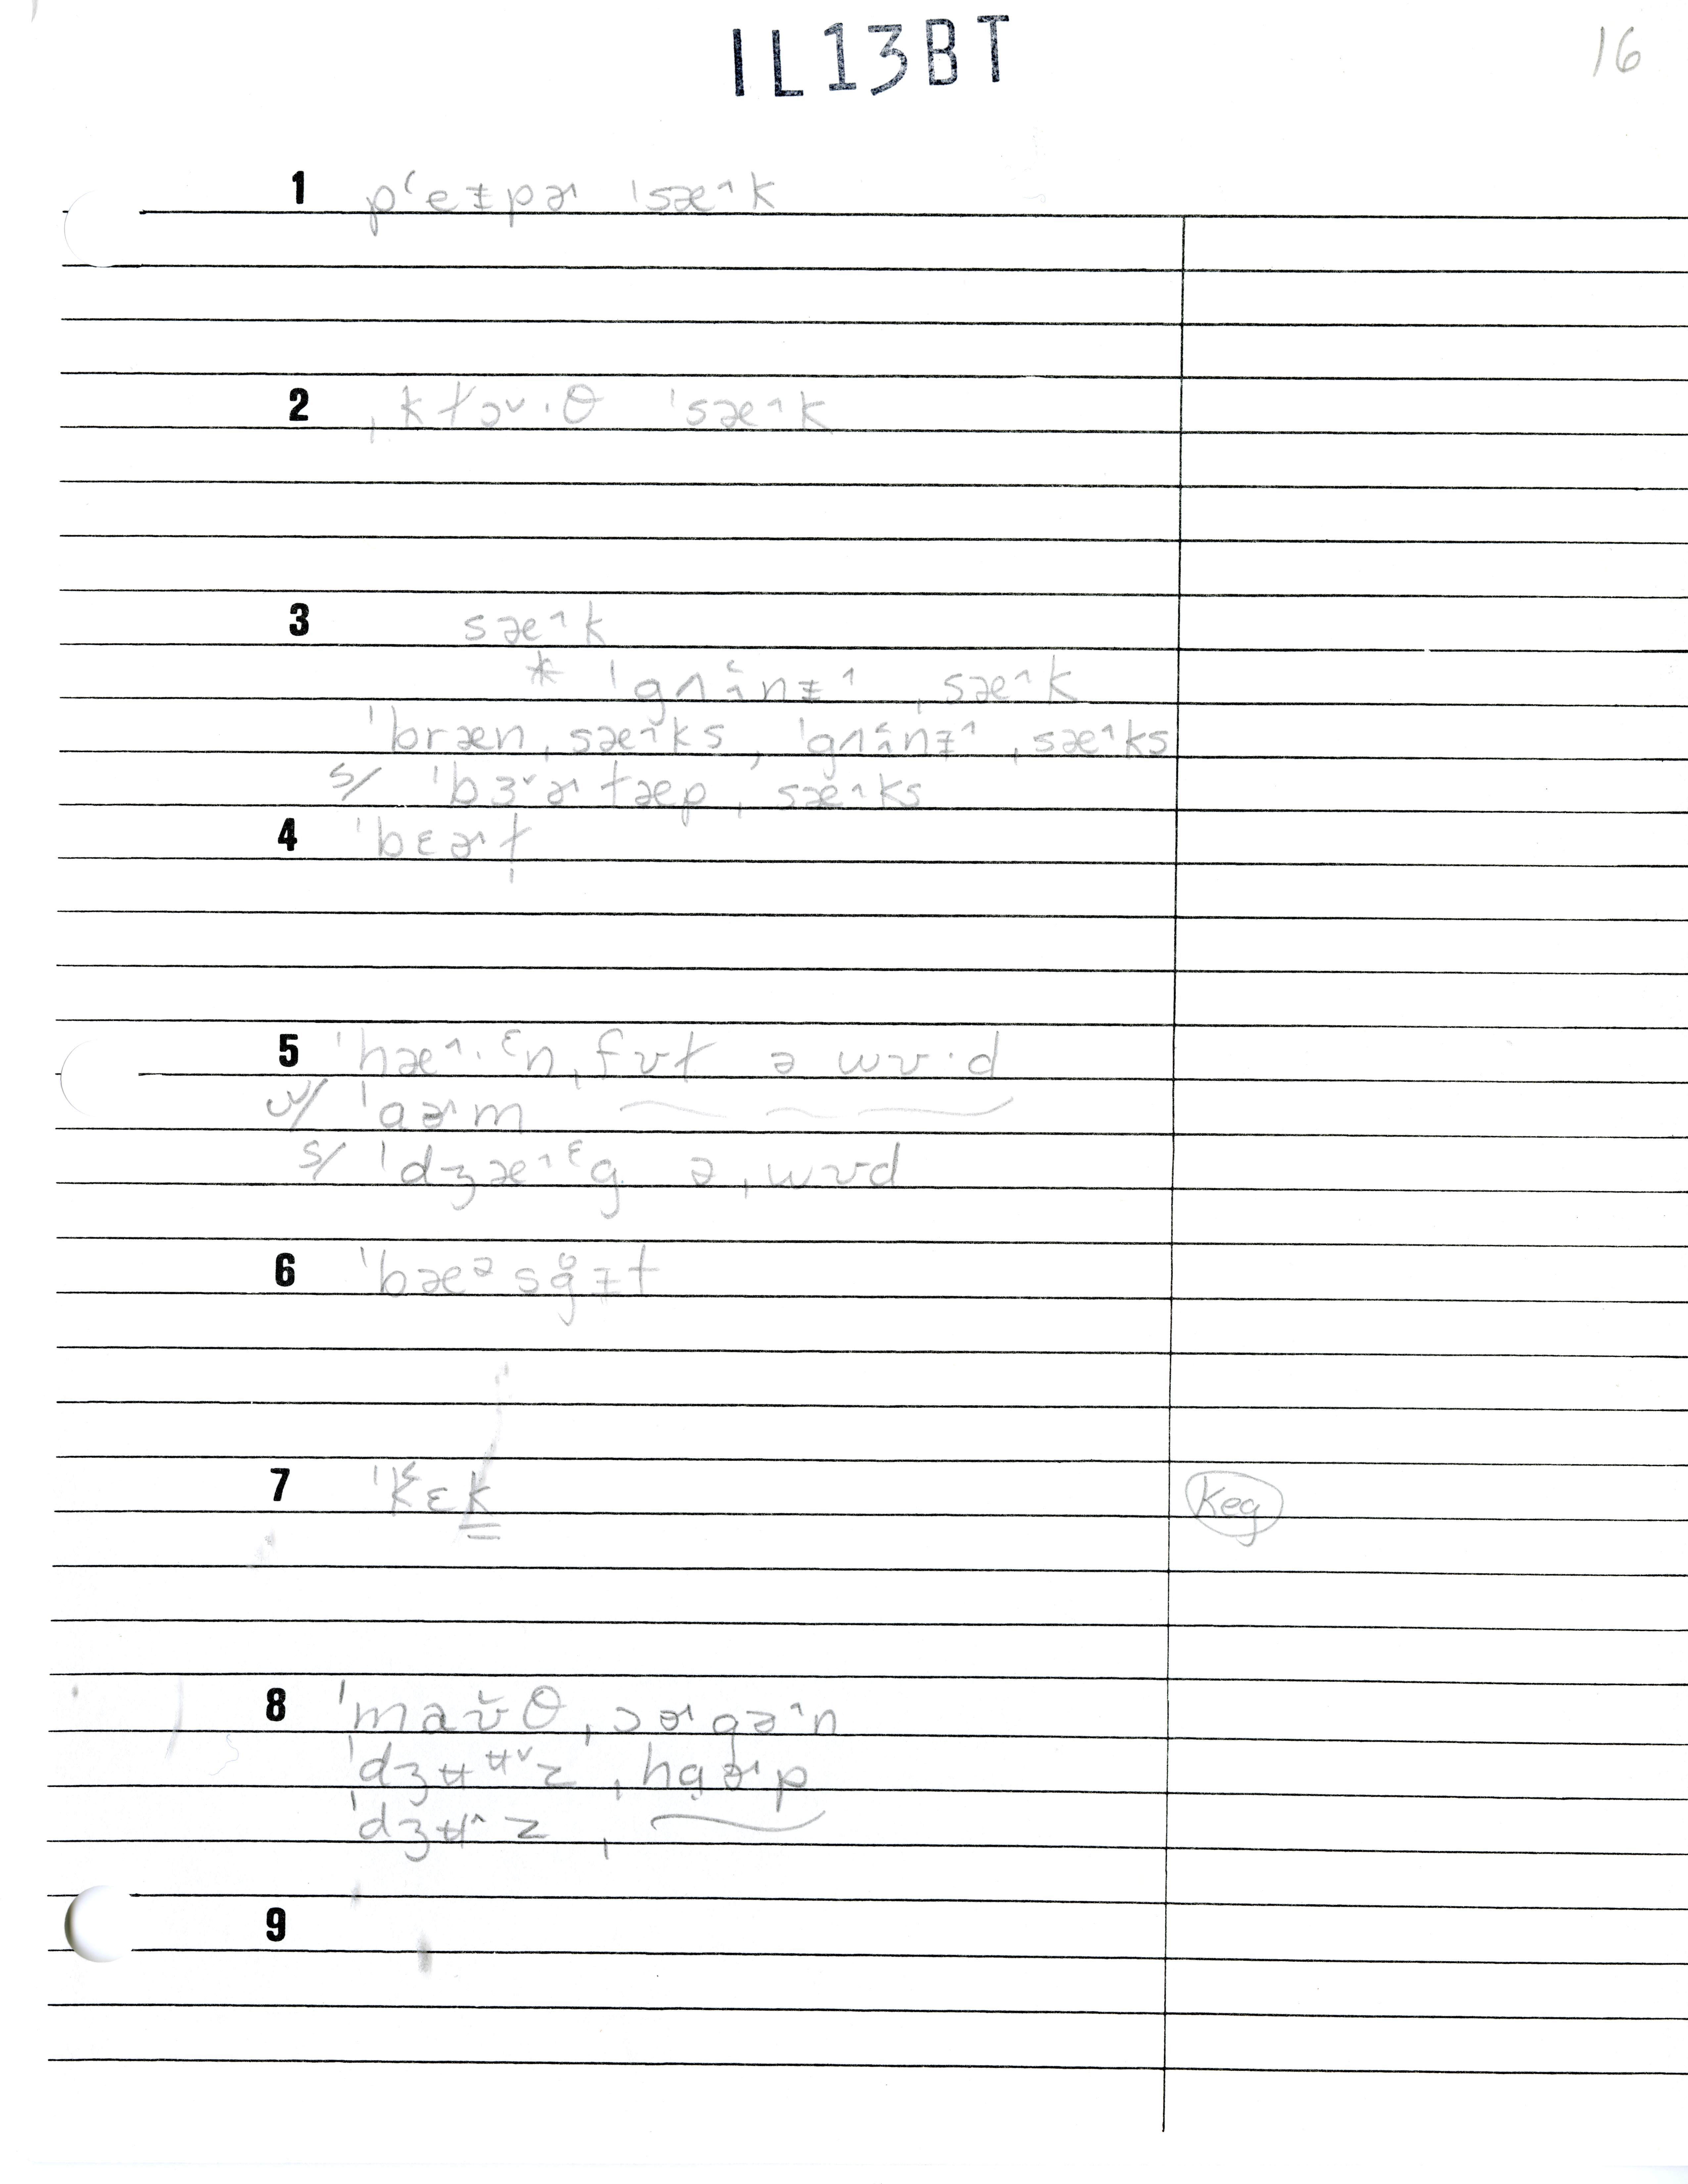 IL13BT
16
1 pʻeɪ̵pɚ ˈsæ^k
2 ˌkɫɔˇ·θ ˈsæ^k
3 sæ^k
* ˈgʌɪ̆nɪ̵^ ˌsæ^k
ˈbræn ˌsæ^ks, ˈgʌɪ̆nɪ̵^ ˌsæ^ks
s/ ˈbɜˇɚ ɫæp ˌsæ^ks
4 ˈbɛɚt̩
5 ˈhæ^·ᵋn ˌfʊɫ ə wʊ·d
w/ ˈɑɚm
s/ ˈdʒæ^ᵋg ə ˌwʊd
6 ˈbæᵊsg̊ɪ̵t
7 ˈkʻɛk Keg
8 ˈmaʊ̆θ ˌɔɚgə^n
ˈdʒʉᶶˇz ˌhɑɚp
ˈdʒʉ^z ˌ
9